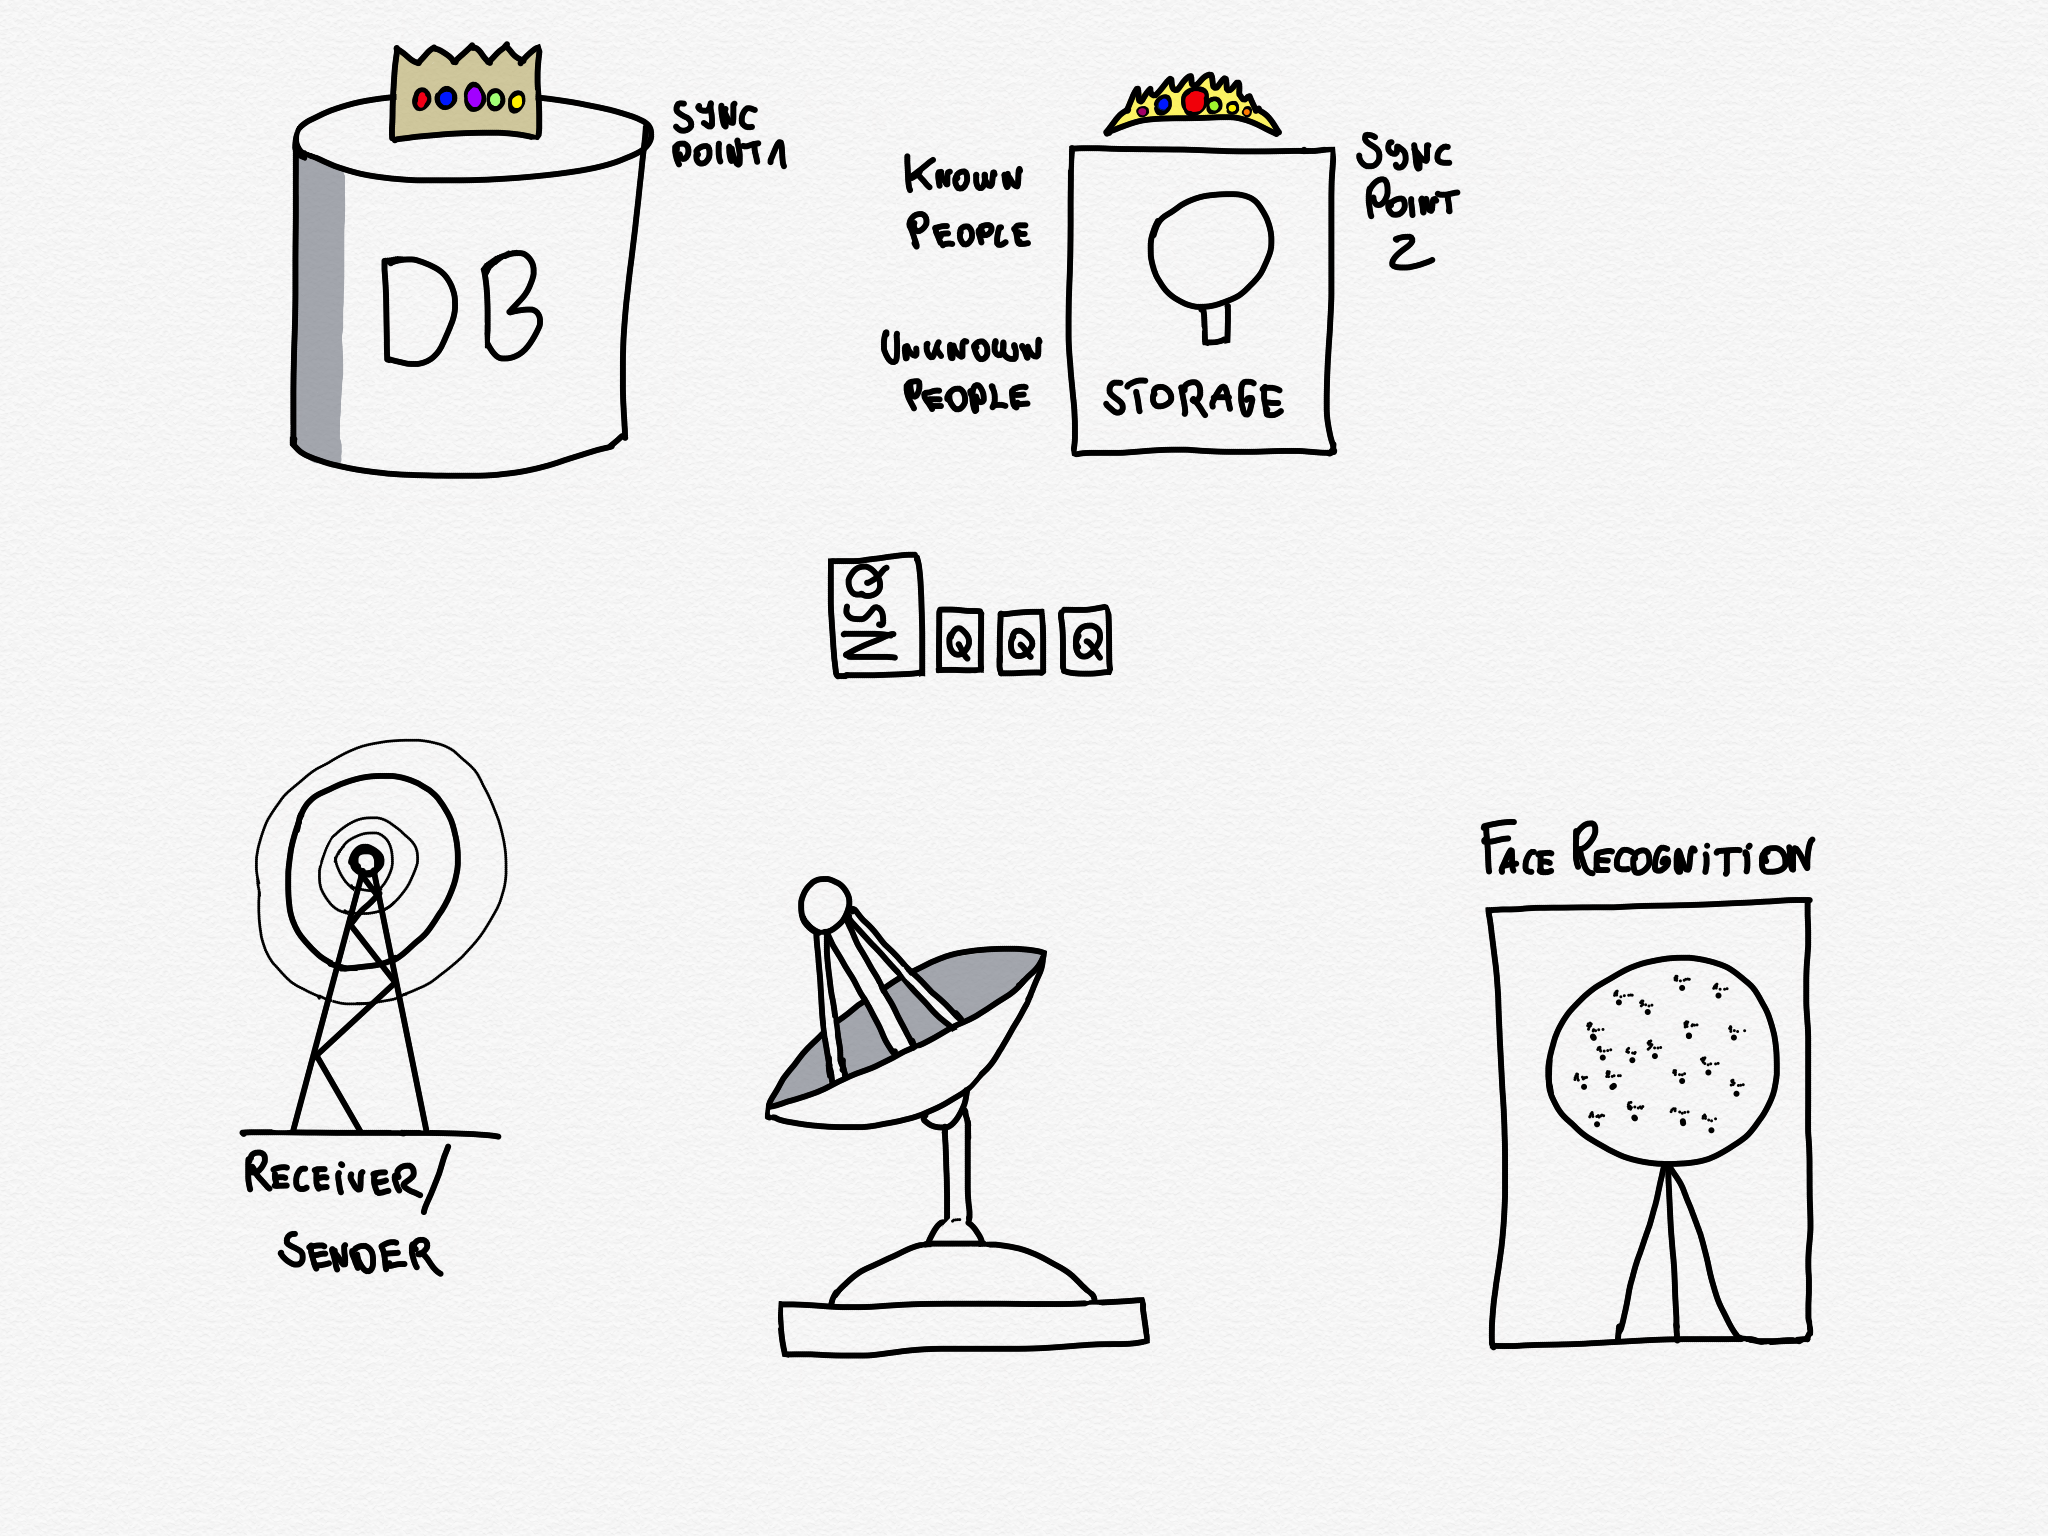 SYNC
POINT 1
DB
KNOWN
PEOPLE
UNKNOWN
PEOPLE
STORAGE
SYNC
POINT
2
NSQ
Q Q Q
RECEIVER/
SENDER
FACE RECOGNITION